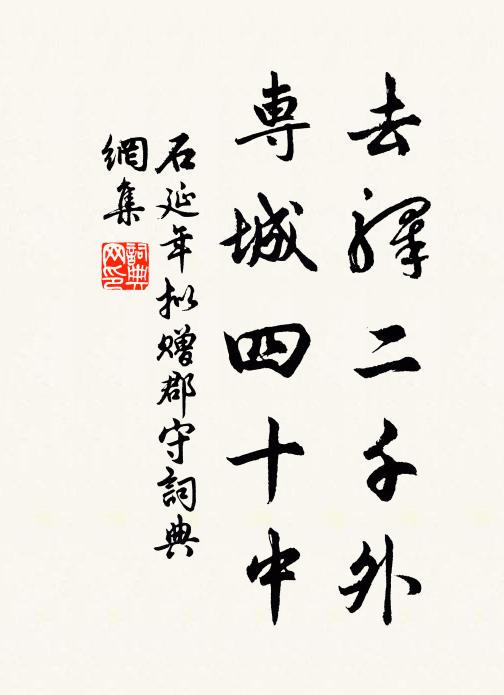 去驛二千外
専城四十中
石延年拟贈郡守詞典
網集
詞典
网印